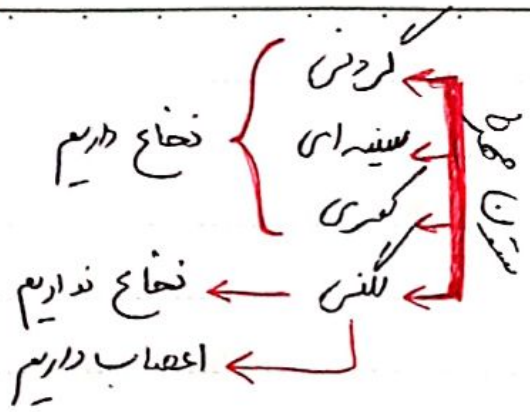 ستون مهره
گردنی
سینه ای
کمری
نخاع داریم
لگنی
نخاع نداریم
اعصاب داریم